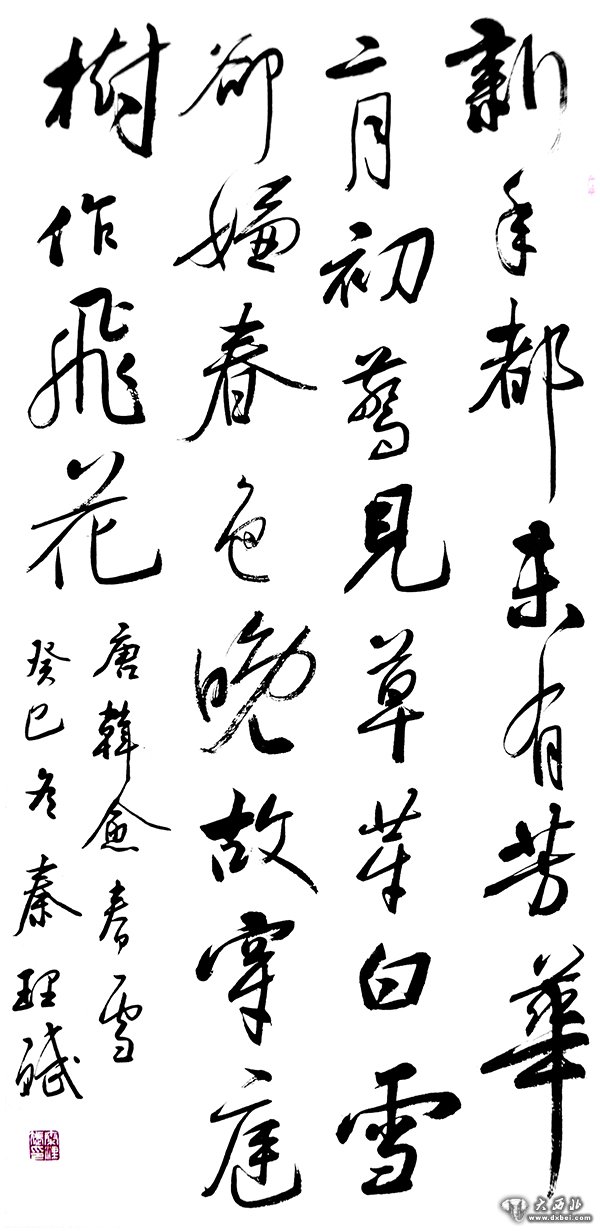 新年都未有芳華
二月初驚見草芽白雪
卻嫌春色晚故穿庭
樹作飛花
唐韓愈春雪
癸巳冬秦理斌
大西北
www.dxbei.com